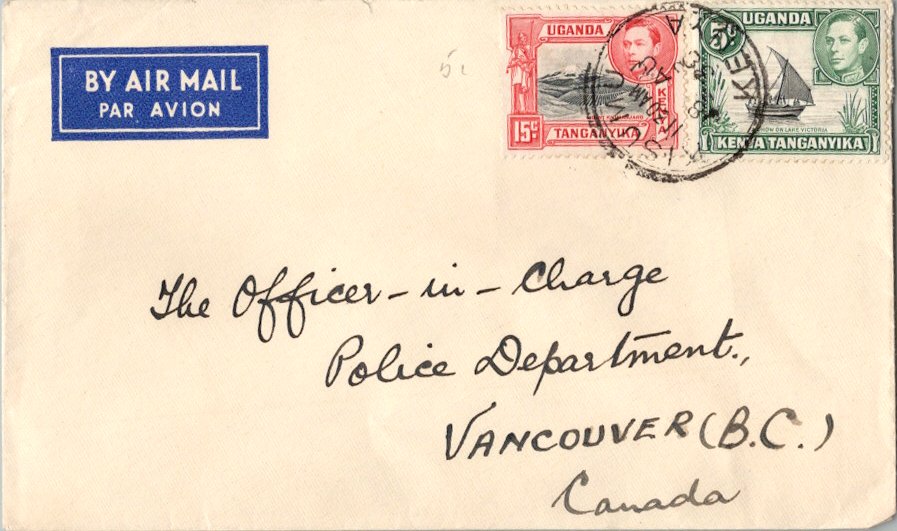 BY AIR MAIL
PAR AVION
UGANDA
KENYA
15c
TANGANYIKA
UGANDA
DHOW ON LAKE VICTORIA
KENYA TANGANYIKA
The Officer-in-Charge
Police Department.,
VANCOUVER (B.C.)
Canada